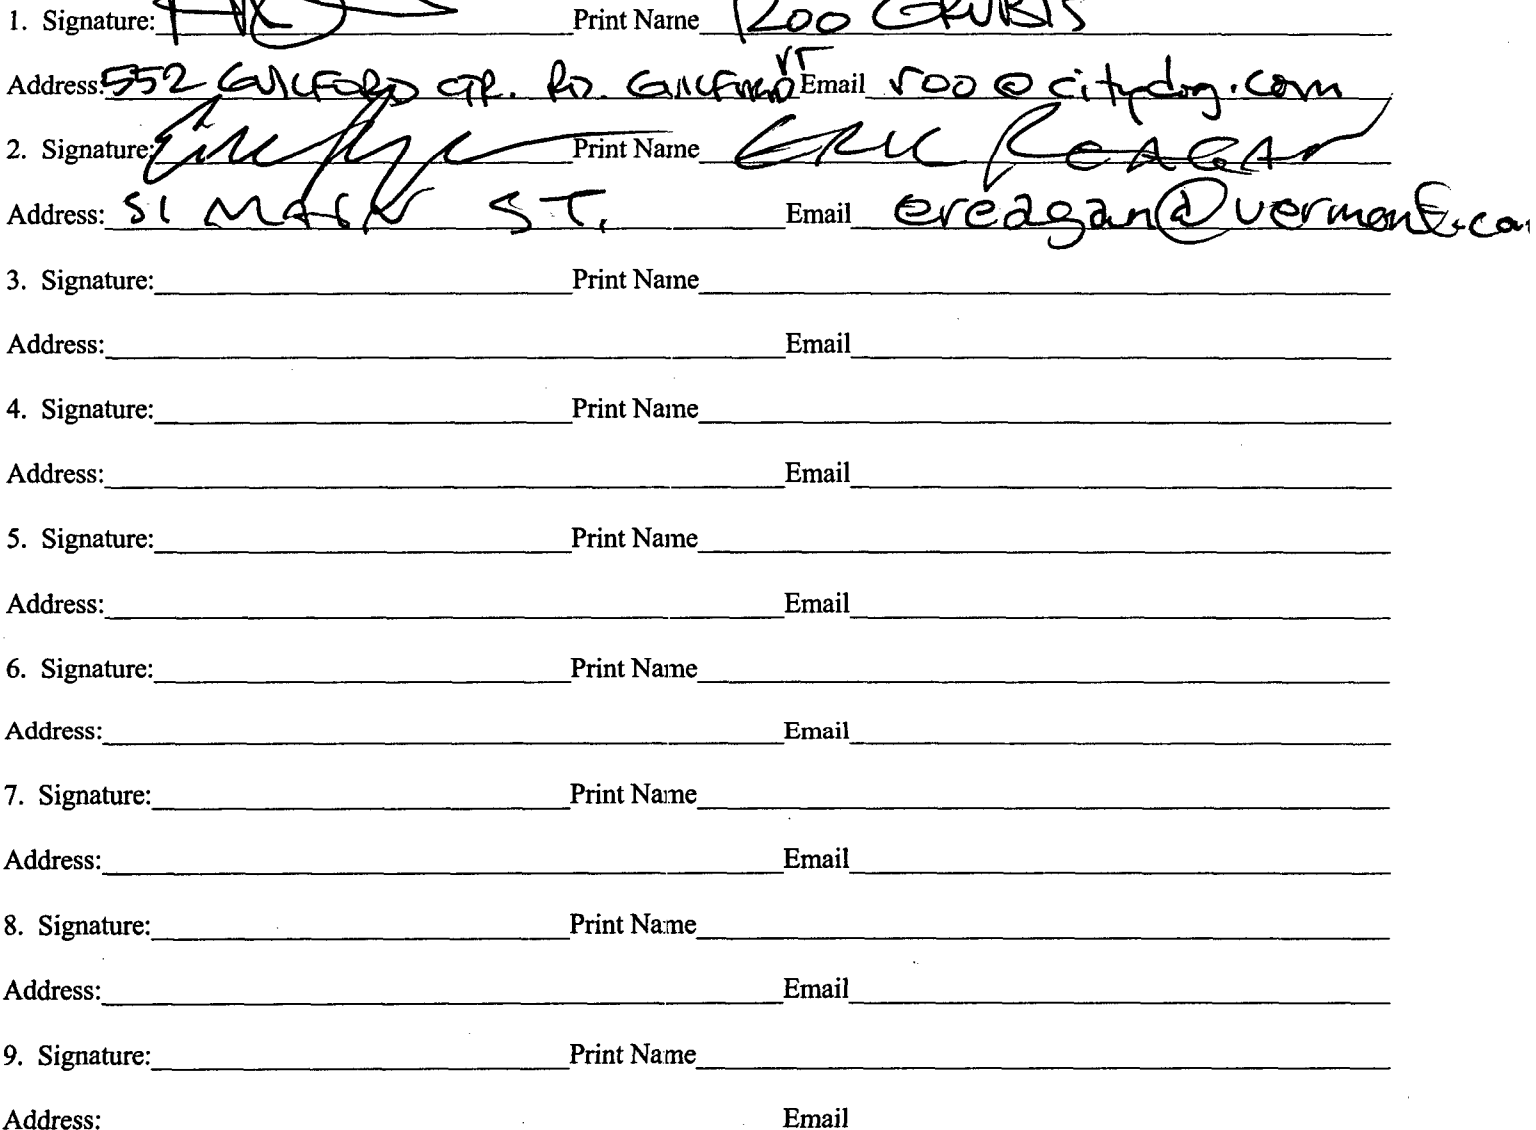 1. Signature: Print Name ROO GRUBIS
Address: 552 GUILFORD CTR. RD. GUILFORD VT Email roo@citydog.com
2. Signature: Print Name ERIC REAGAN
Address: 51 MAIN ST. Email ereagan@vermont.com
3. Signature: Print Name
Address: Email
4. Signature: Print Name
Address: Email
5. Signature: Print Name
Address: Email
6. Signature: Print Name
Address: Email
7. Signature: Print Name
Address: Email
8. Signature: Print Name
Address: Email
9. Signature: Print Name
Address: Email